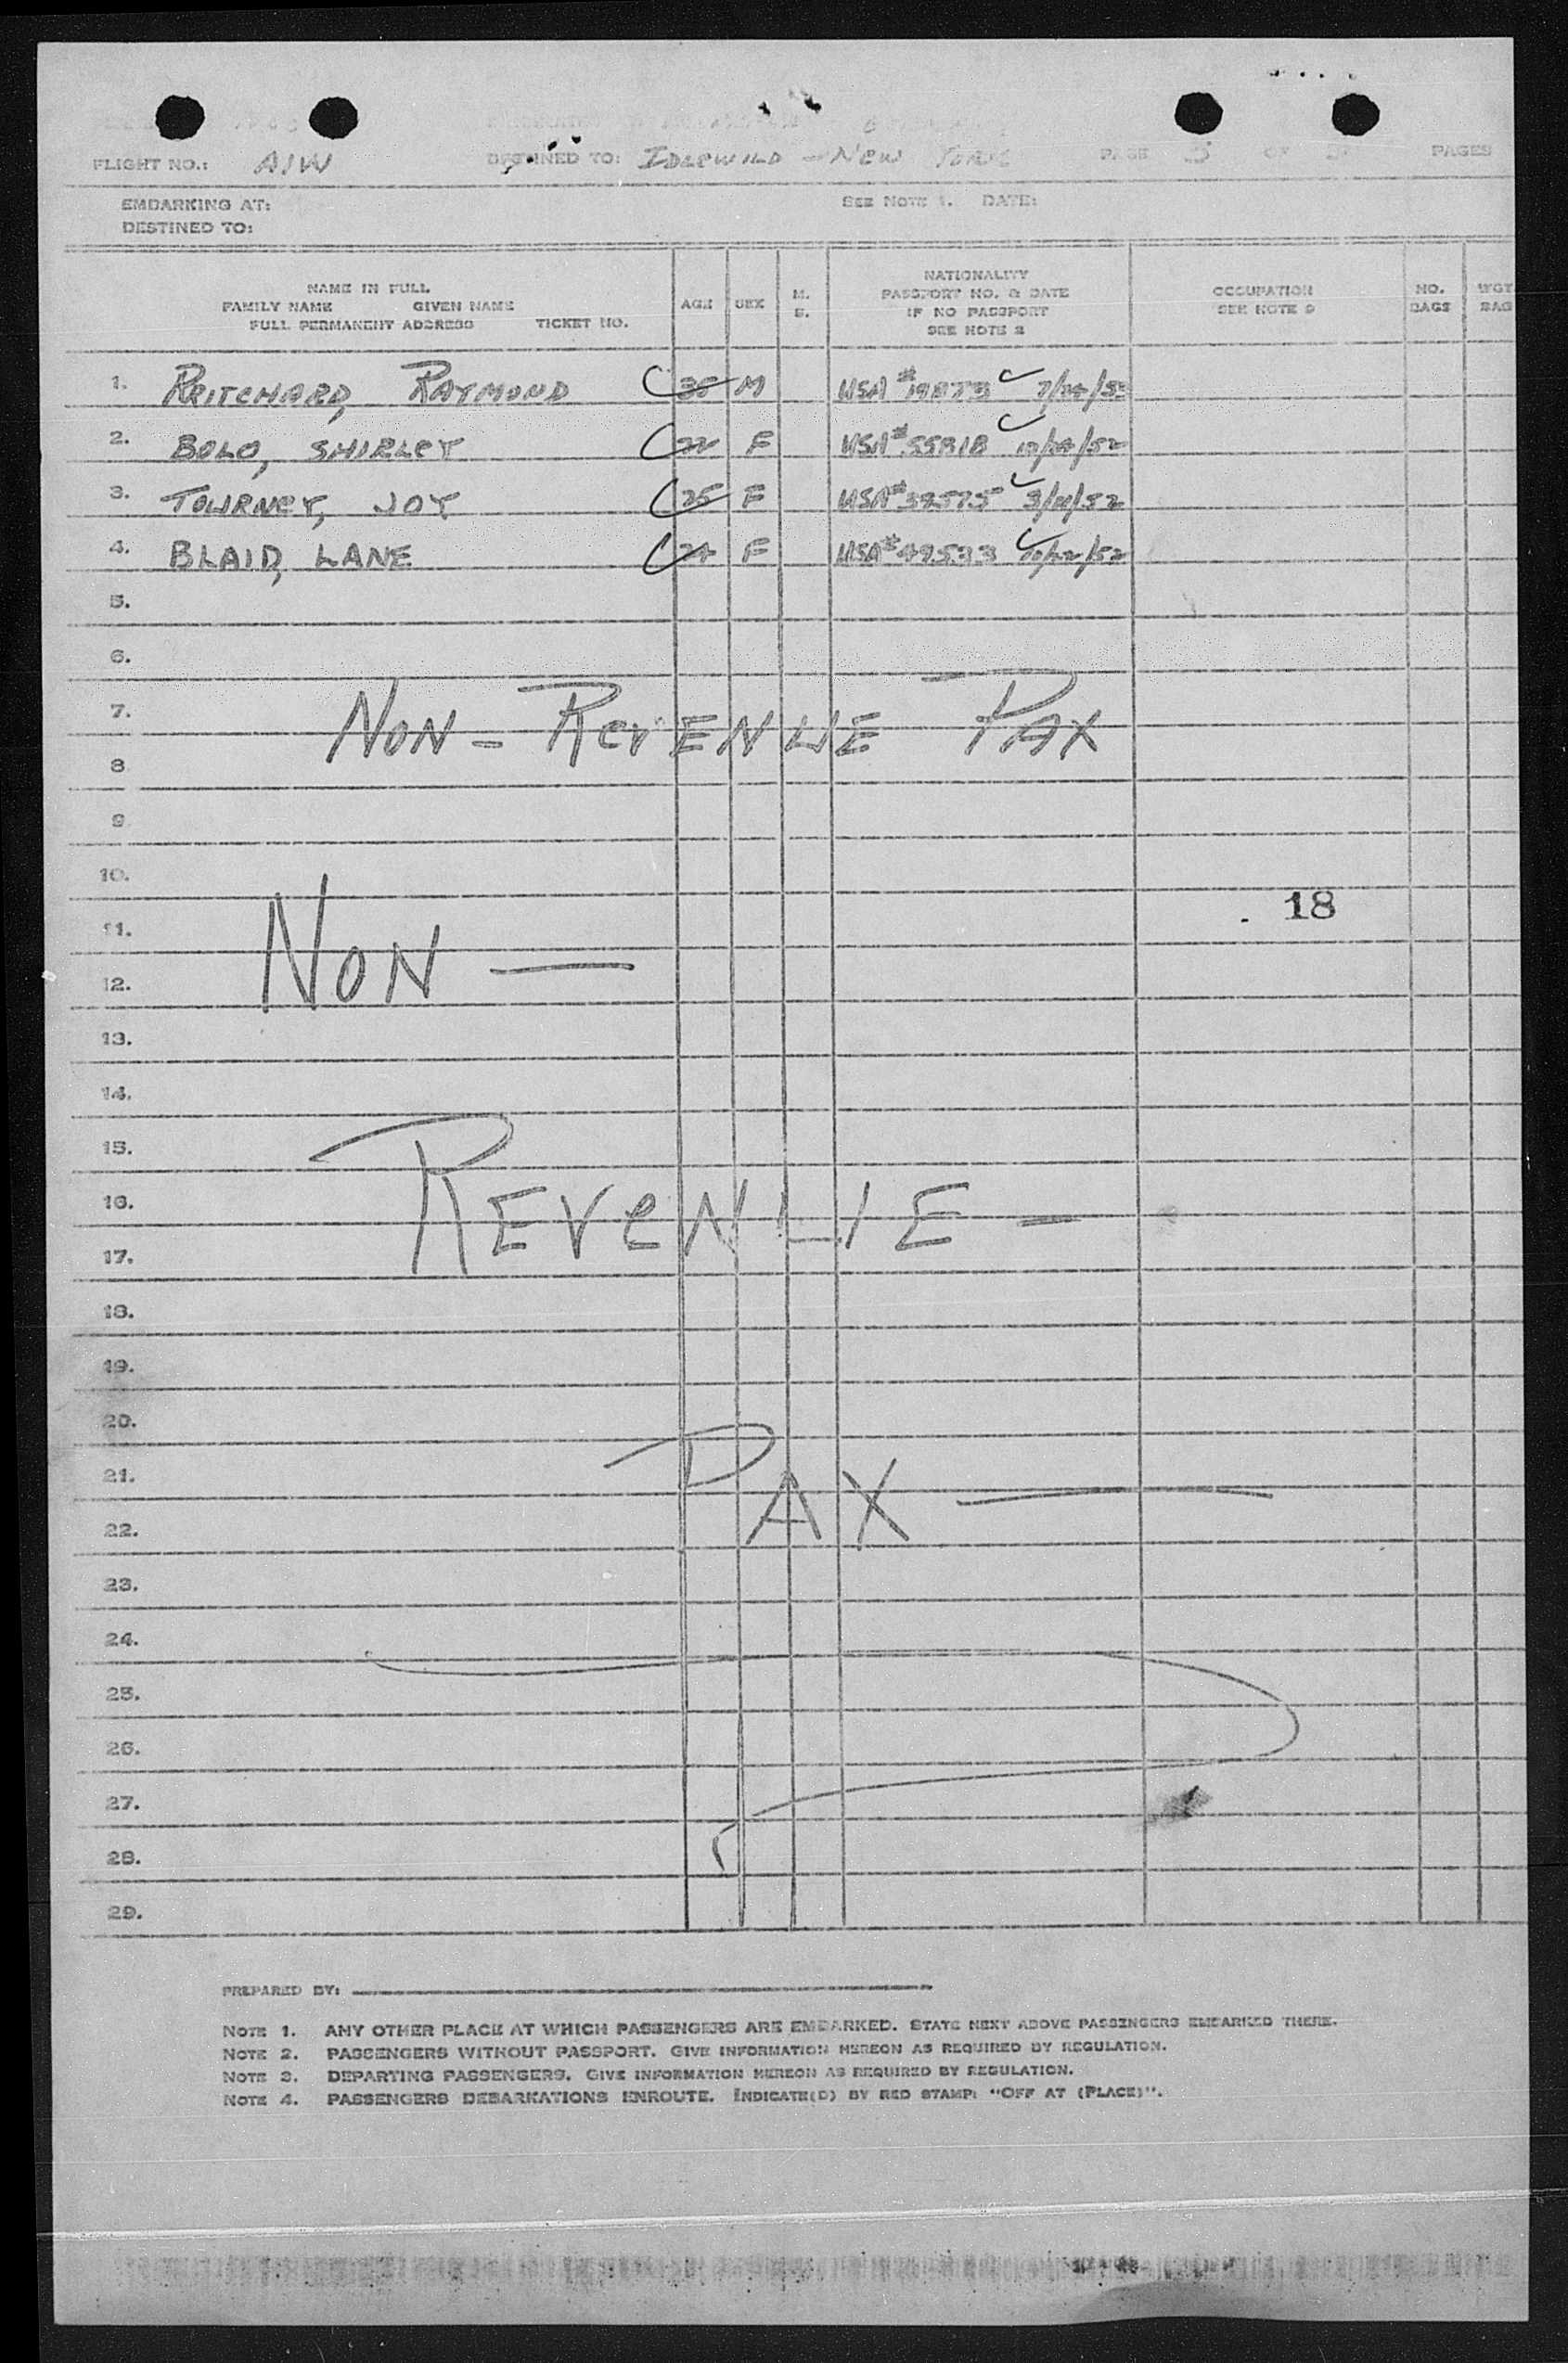 FLIGHT NO.: A/W DESTINED TO: IDLEWILD - NEW YORK PAGE OF PAGES
EMBARKING AT: SEE NOTE 1. DATE:
DESTINED TO:
NAME IN FULL
FAMILY NAME GIVEN NAME
FULL PERMANENT ADDRESS TICKET NO.
AGE
SEX
M.
S.
NATIONALITY
PASSPORT NO. & DATE
IF NO PASSPORT
SEE NOTE 2
OCCUPATION
SEE NOTE 3
NO.
BAGS
WGT
BAG
1. PRITCHARD, RAYMOND M USA
2. BOLO, SHIRLEY 22 F USA #55918 12/
3. TOURNEY, JOY 25 F USA #39575 3/11/52
4. BLAID, LANE 24 F USA #49533 10/22/52
5.
6.
7.
NON-REVENUE PAX
8
9
10.
18
11.
NON —
12.
13.
14.
15.
16.
REVENUE —
17.
18.
19.
20.
21.
PAX —
22.
23.
24.
25.
26.
27.
28.
29.
PREPARED BY:
NOTE 1. ANY OTHER PLACE AT WHICH PASSENGERS ARE EMBARKED. STATE NEXT ABOVE PASSENGERS EMBARKED THERE.
NOTE 2. PASSENGERS WITHOUT PASSPORT. GIVE INFORMATION HEREON AS REQUIRED BY REGULATION.
NOTE 3. DEPARTING PASSENGERS. GIVE INFORMATION HEREON AS REQUIRED BY REGULATION.
NOTE 4. PASSENGERS DEBARKATIONS ENROUTE. INDICATE(D) BY RED STAMP: "OFF AT (PLACE)".